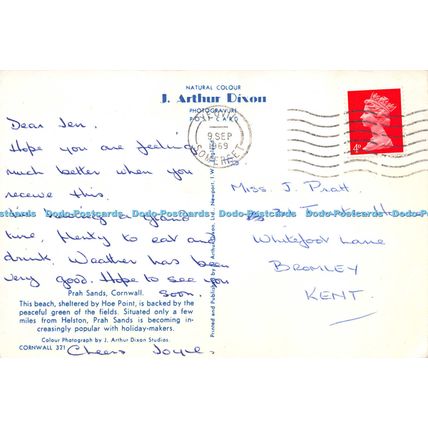 NATURAL COLOUR
J. Arthur Dixon
PHOTOGRAVURE
POST CARD
9 SEP
1969
SOMERSET
4D
Dear Jen.
Hope you are feeling
much better when you
receive this.
having a grand
time, plenty to eat and
drink. Weather has been
very good. Hope to see you
soon.
Cheers Joyce.
Miss. J. Pratt.
Whitefoot Lane
BROMLEY
KENT.
Dodo-Postcards Dodo-Postcards Dodo-Postcards Dodo-Postcards Dodo-Postcards
Printed and Published by J. Arthur Dixon Ltd., Newport I.W.
Prah Sands, Cornwall.
This beach, sheltered by Hoe Point, is backed by the
peaceful green of the fields. Situated only a few
miles from Helston, Prah Sands is becoming in-
creasingly popular with holiday-makers.
Colour Photograph by J. Arthur Dixon Studios.
CORNWALL 321